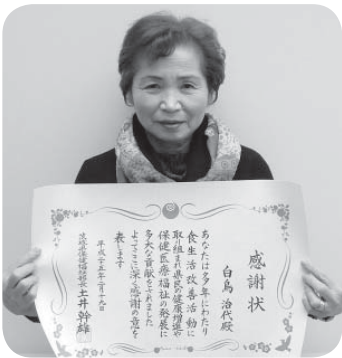 感謝状
白鳥治代殿
あなたは多年にわたり
食生活改善活動に
取り組まれ県民の健康増進や
保健医療福祉の発展に
多大な貢献をされました
よってここに深く感謝の意を
表します
平成二十五年二月十九日
茨城県保健福祉部長 土井幹雄